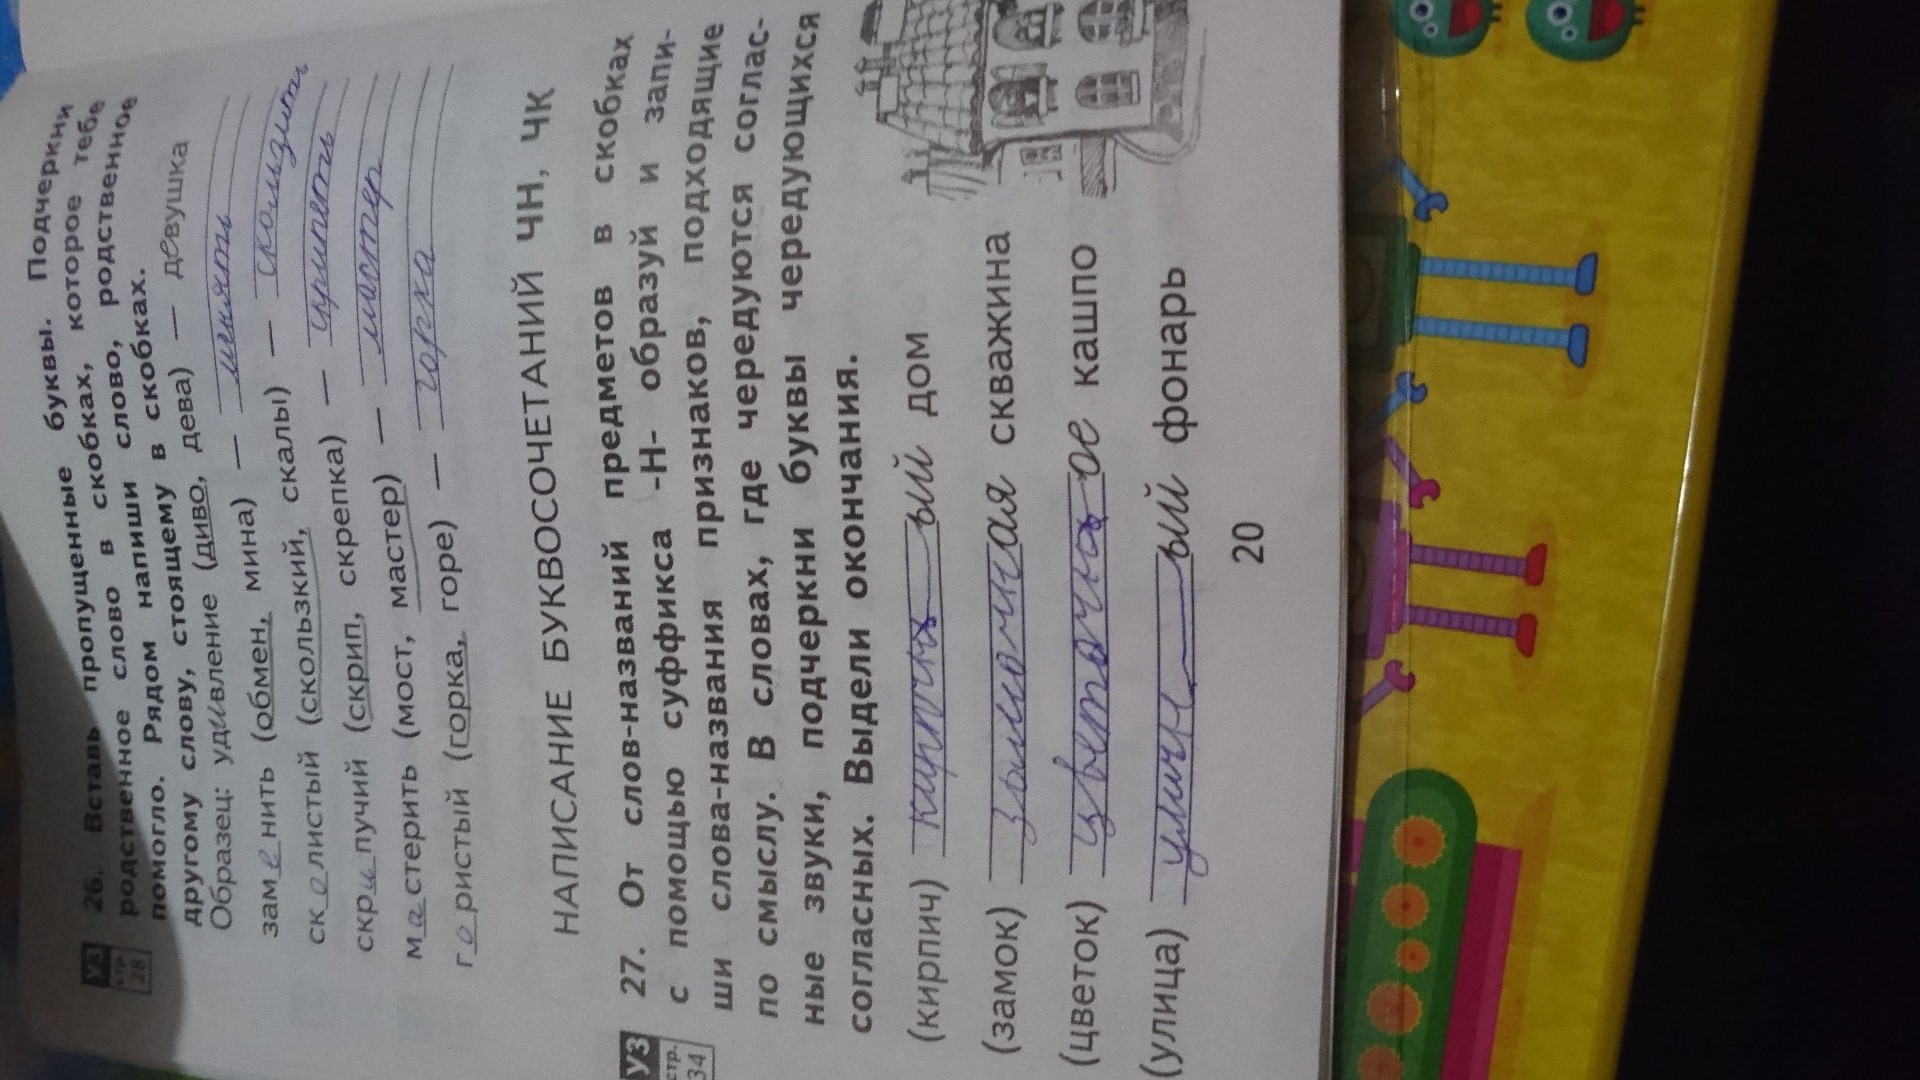 УЗ 26. Вставь пропущенные буквы. Подчеркни
стр. 28 родственное слово в скобках, которое тебе
помогло. Рядом напиши слово, родственное
другому слову, стоящему в скобках.
Образец: удивление (диво, дева) — девушка
заменить (обмен, мина) —
скалистый (скользкий, скалы) — скользить
скрипучий (скрип, скрепка) —
мастерить (мост, мастер) —
гористый (горка, горе) — горка
НАПИСАНИЕ БУКВОСОЧЕТАНИЙ ЧН, ЧК
УЗ 27. От слов-названий предметов в скобках
стр. 34 с помощью суффикса -Н- образуй и запи-
ши слова-названия признаков, подходящие
по смыслу. В словах, где чередуются соглас-
ные звуки, подчеркни буквы чередующихся
согласных. Выдели окончания.
(кирпич) кирпичн ый дом
(замок) замочная скважина
(цветок) цветочн ое кашпо
(улица) уличн ый фонарь
20